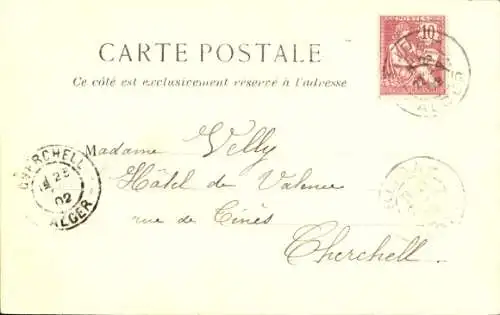 CARTE POSTALE
Ce côté est exclusivement réservé à l'adresse
POSTES
10
ALGER
Madame Velly
Hôtel de Valence
rue de Ténès
Cherchell
CHERCHELL
25
02
ALGER